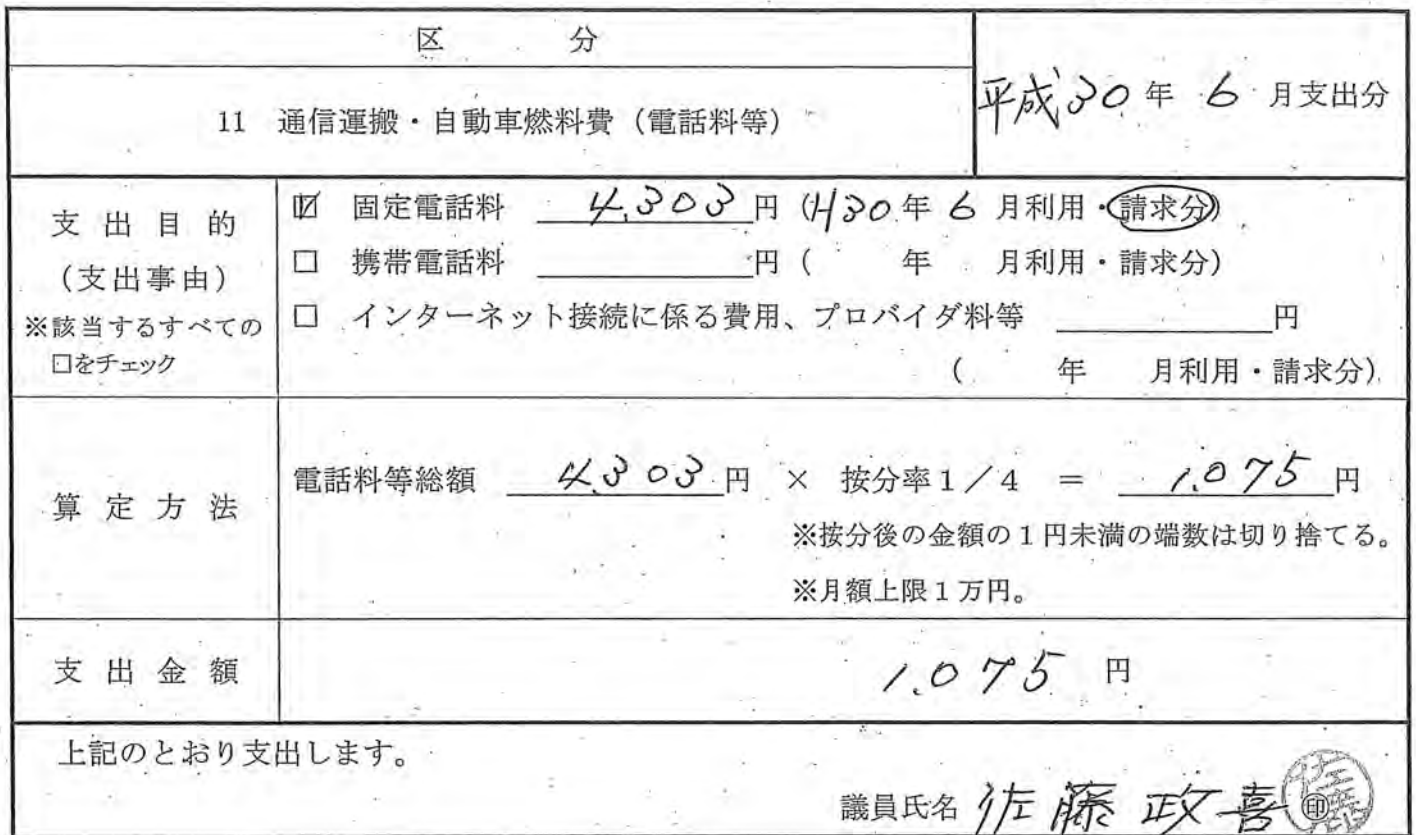 区 分
11 通信運搬・自動車燃料費（電話料等）
平成30年 6 月支出分
支出目的
（支出事由）
※該当するすべての
□をチェック
☑ 固定電話料 4,303円（H30年 6 月利用・請求分）
□ 携帯電話料 円（ 年 月利用・請求分）
□ インターネット接続に係る費用、プロバイダ料等 円
（ 年 月利用・請求分）
算定方法
電話料等総額 4,303円 × 按分率1／4 ＝ 1,075円
※按分後の金額の1円未満の端数は切り捨てる。
※月額上限1万円。
支出金額
1,075 円
上記のとおり支出します。
議員氏名 佐藤政喜 ㊞
佐藤